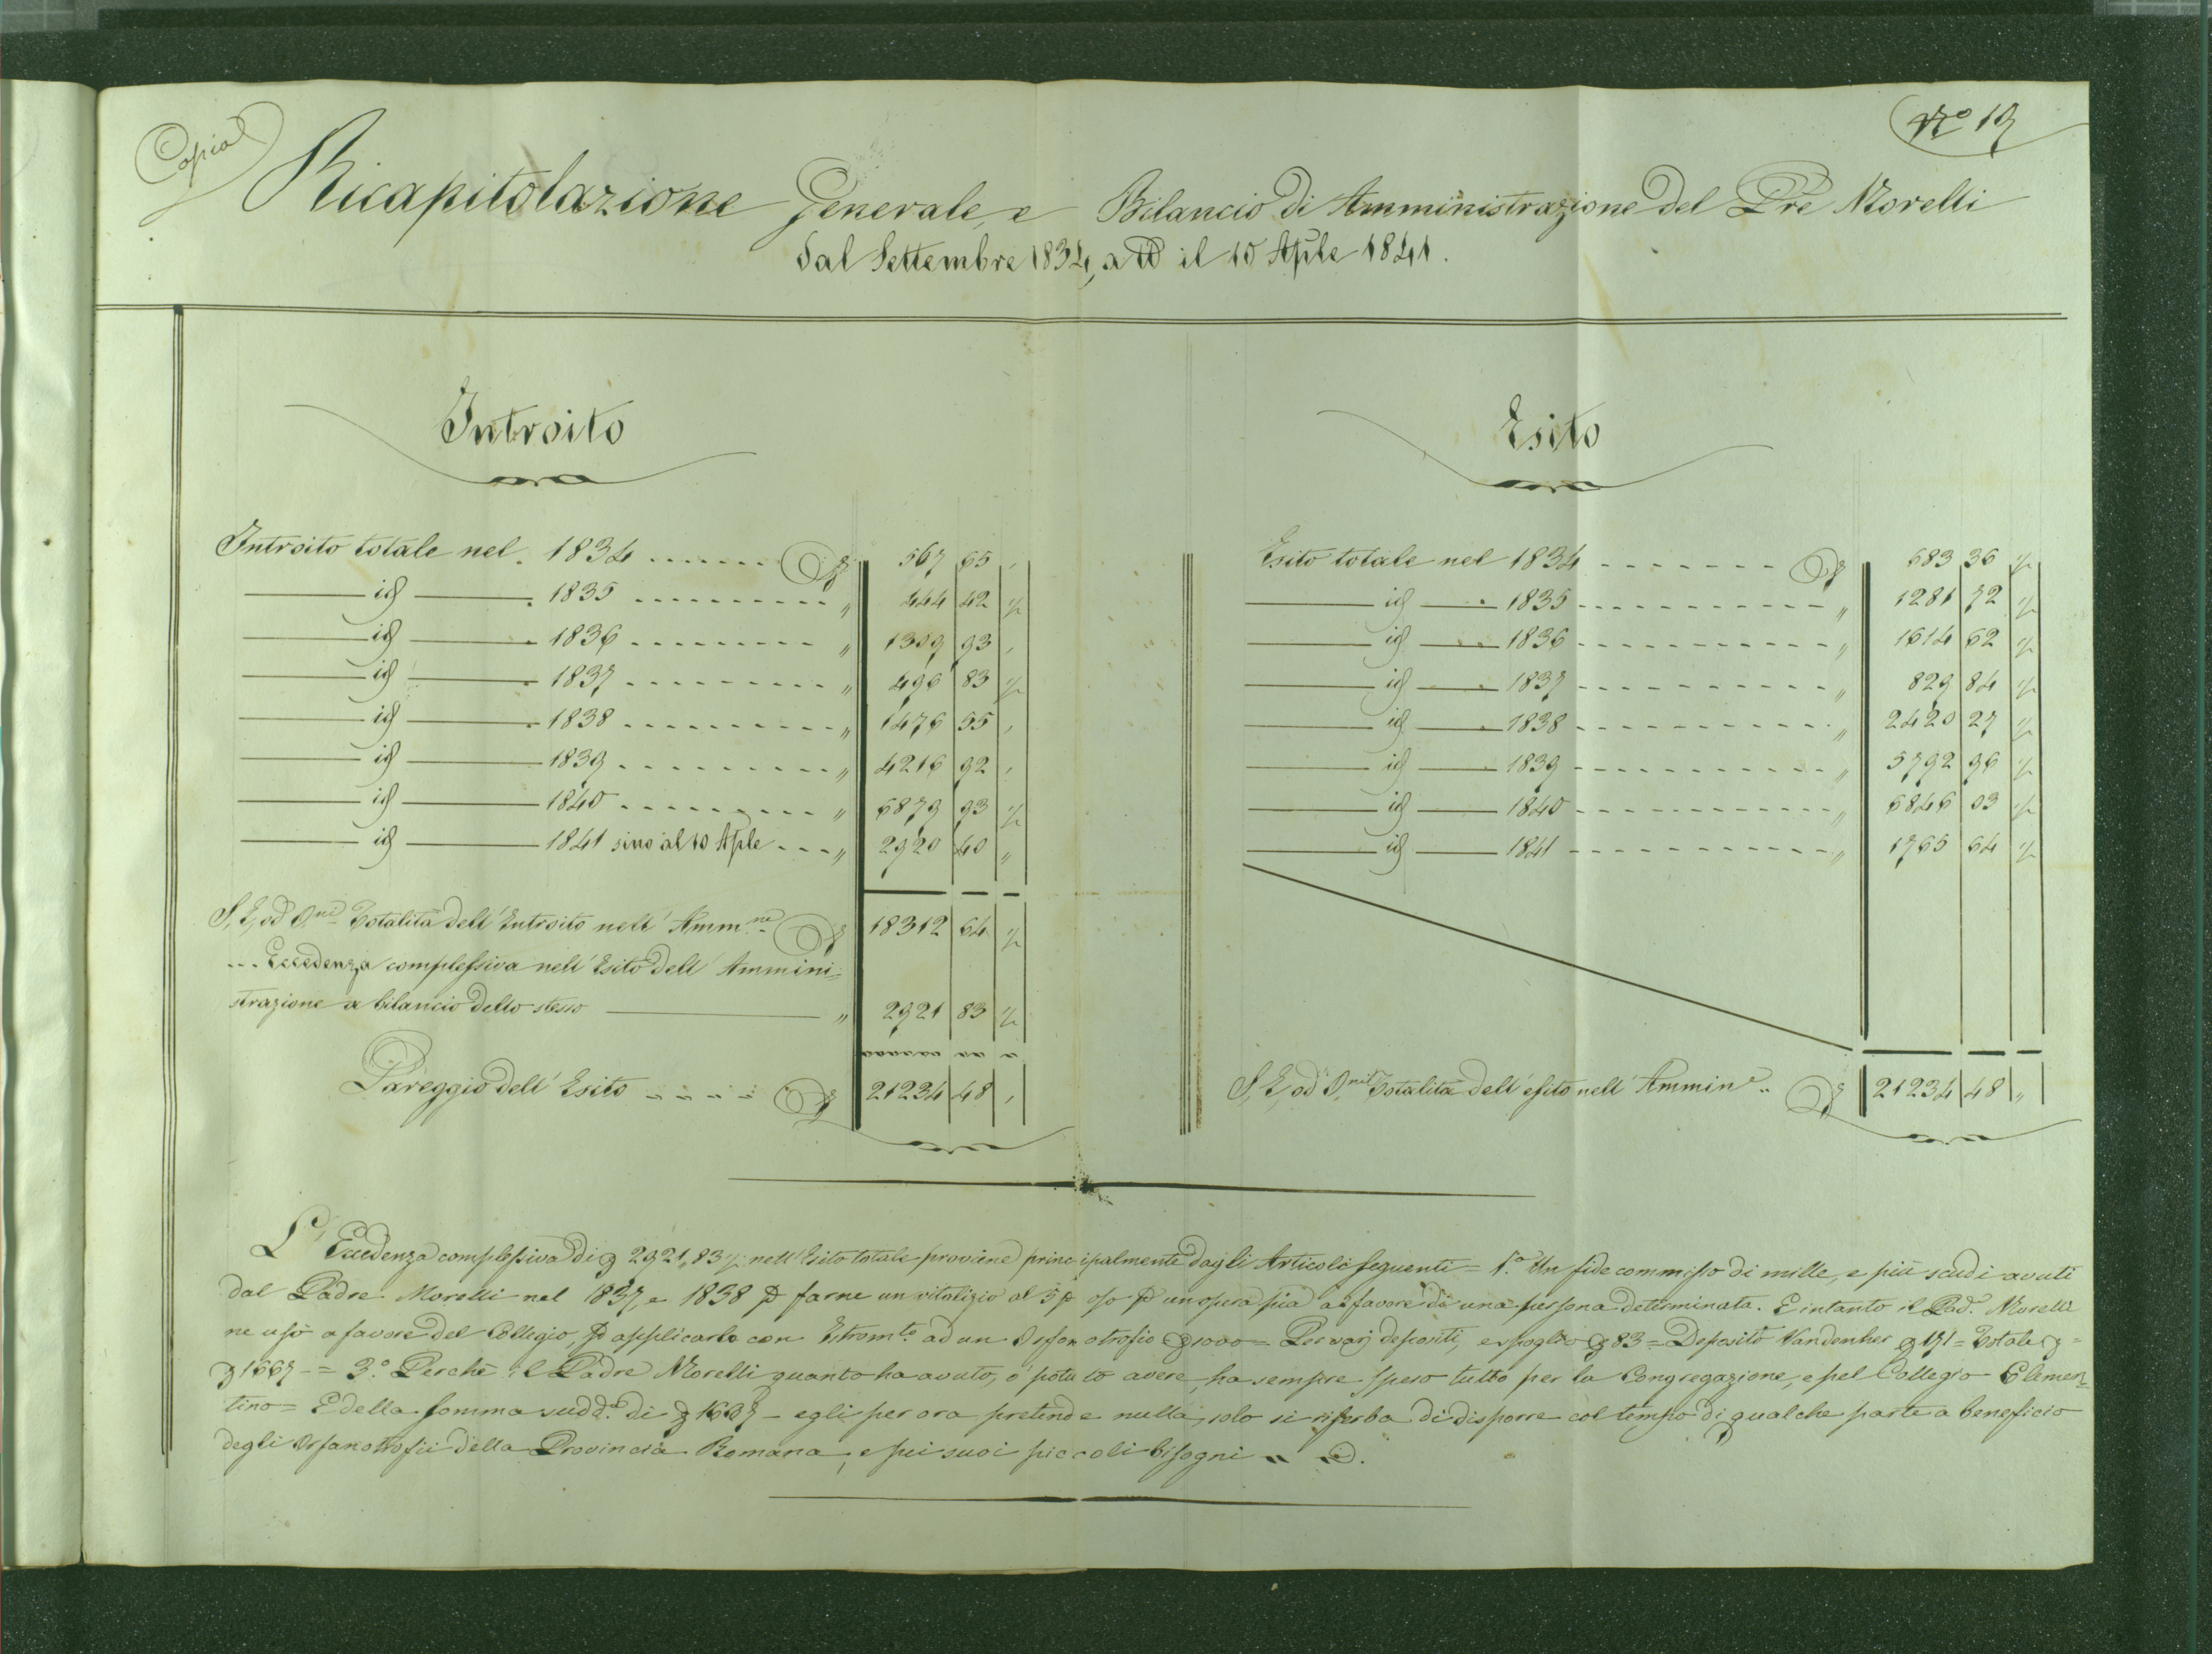 Copia
Nº 19
Ricapitolazione Generale, e Bilancio di Amministrazione del Pre Morelli
dal Settembre 1834, a tt° il 10 Aple 1841.
Introito
Introito totale nel. 1834 ....... 567 65 ,
id . 1835 .......... „ 444 42 ½
id . 1836 ......... „ 1309 93 ,
id . 1837 ......... „ 496 83 ½
id . 1838 .......... „ 1476 55 ,
id 1839 ......... „ 4216 92 ,
id 1840 ......... „ 6879 93 ½
id 1841 sino al 10 Aple ... „ 2920 40 „
S. E, od O.ni Totalità dell'Introito nell'Amm.ne 18312 64 ½
... Eccedenza complessiva nell'Esito dell'Ammini=
strazione a bilancio dello stesso „ 2921 83 ½
Pareggio dell'Esito 21234 48 ,
Esito
Esito totale nel 1834 ....... 683 36 ½
id 1835 .......... „ 1281 72 ½
id 1836 .......... „ 1614 62 ½
id 1837 .......... „ 829 84 ½
id 1838 .......... „ 2420 27 ½
id 1839 .......... „ 5792 96 ½
id 1840 .......... „ 6846 03 ½
id 1841 .......... „ 1765 64 ½
S. E, od O.ni Totalità dell'esito nell'Ammin.e 21234 48 „
L'Eccedenza complessiva di 2921,83½ nell'Esito totale proviene principalmente dagli Articoli seguenti = 1.° Un fidecommisso di mille, e più scudi avuti
dal Padre Morelli nel 1837, e 1838 p farne un vitalizio al 5 p o/o p un opera pia a favore di una persona determinata. E intanto il Pad. Morelli
ne usò a favore del Collegio, p applicarlo con Istrom.to ad un Orfanotrofio 1000 = Per varj deposti, e spoglio 83 = Deposito Vandenher 171 = Totale =
1667 - = 3.° Perchè il Padre Morelli quanto ha avuto, o potuto avere, ha sempre speso tutto per la Congregazione, e pel Collegio Clemen=
tino = E della somma sudd.a di - egli per ora pretende nulla, solo si riserba di disporre col tempo di qualche parte a beneficio
degli Orfanotrofii della Provincia Romana, e pei suoi piccoli bisogni